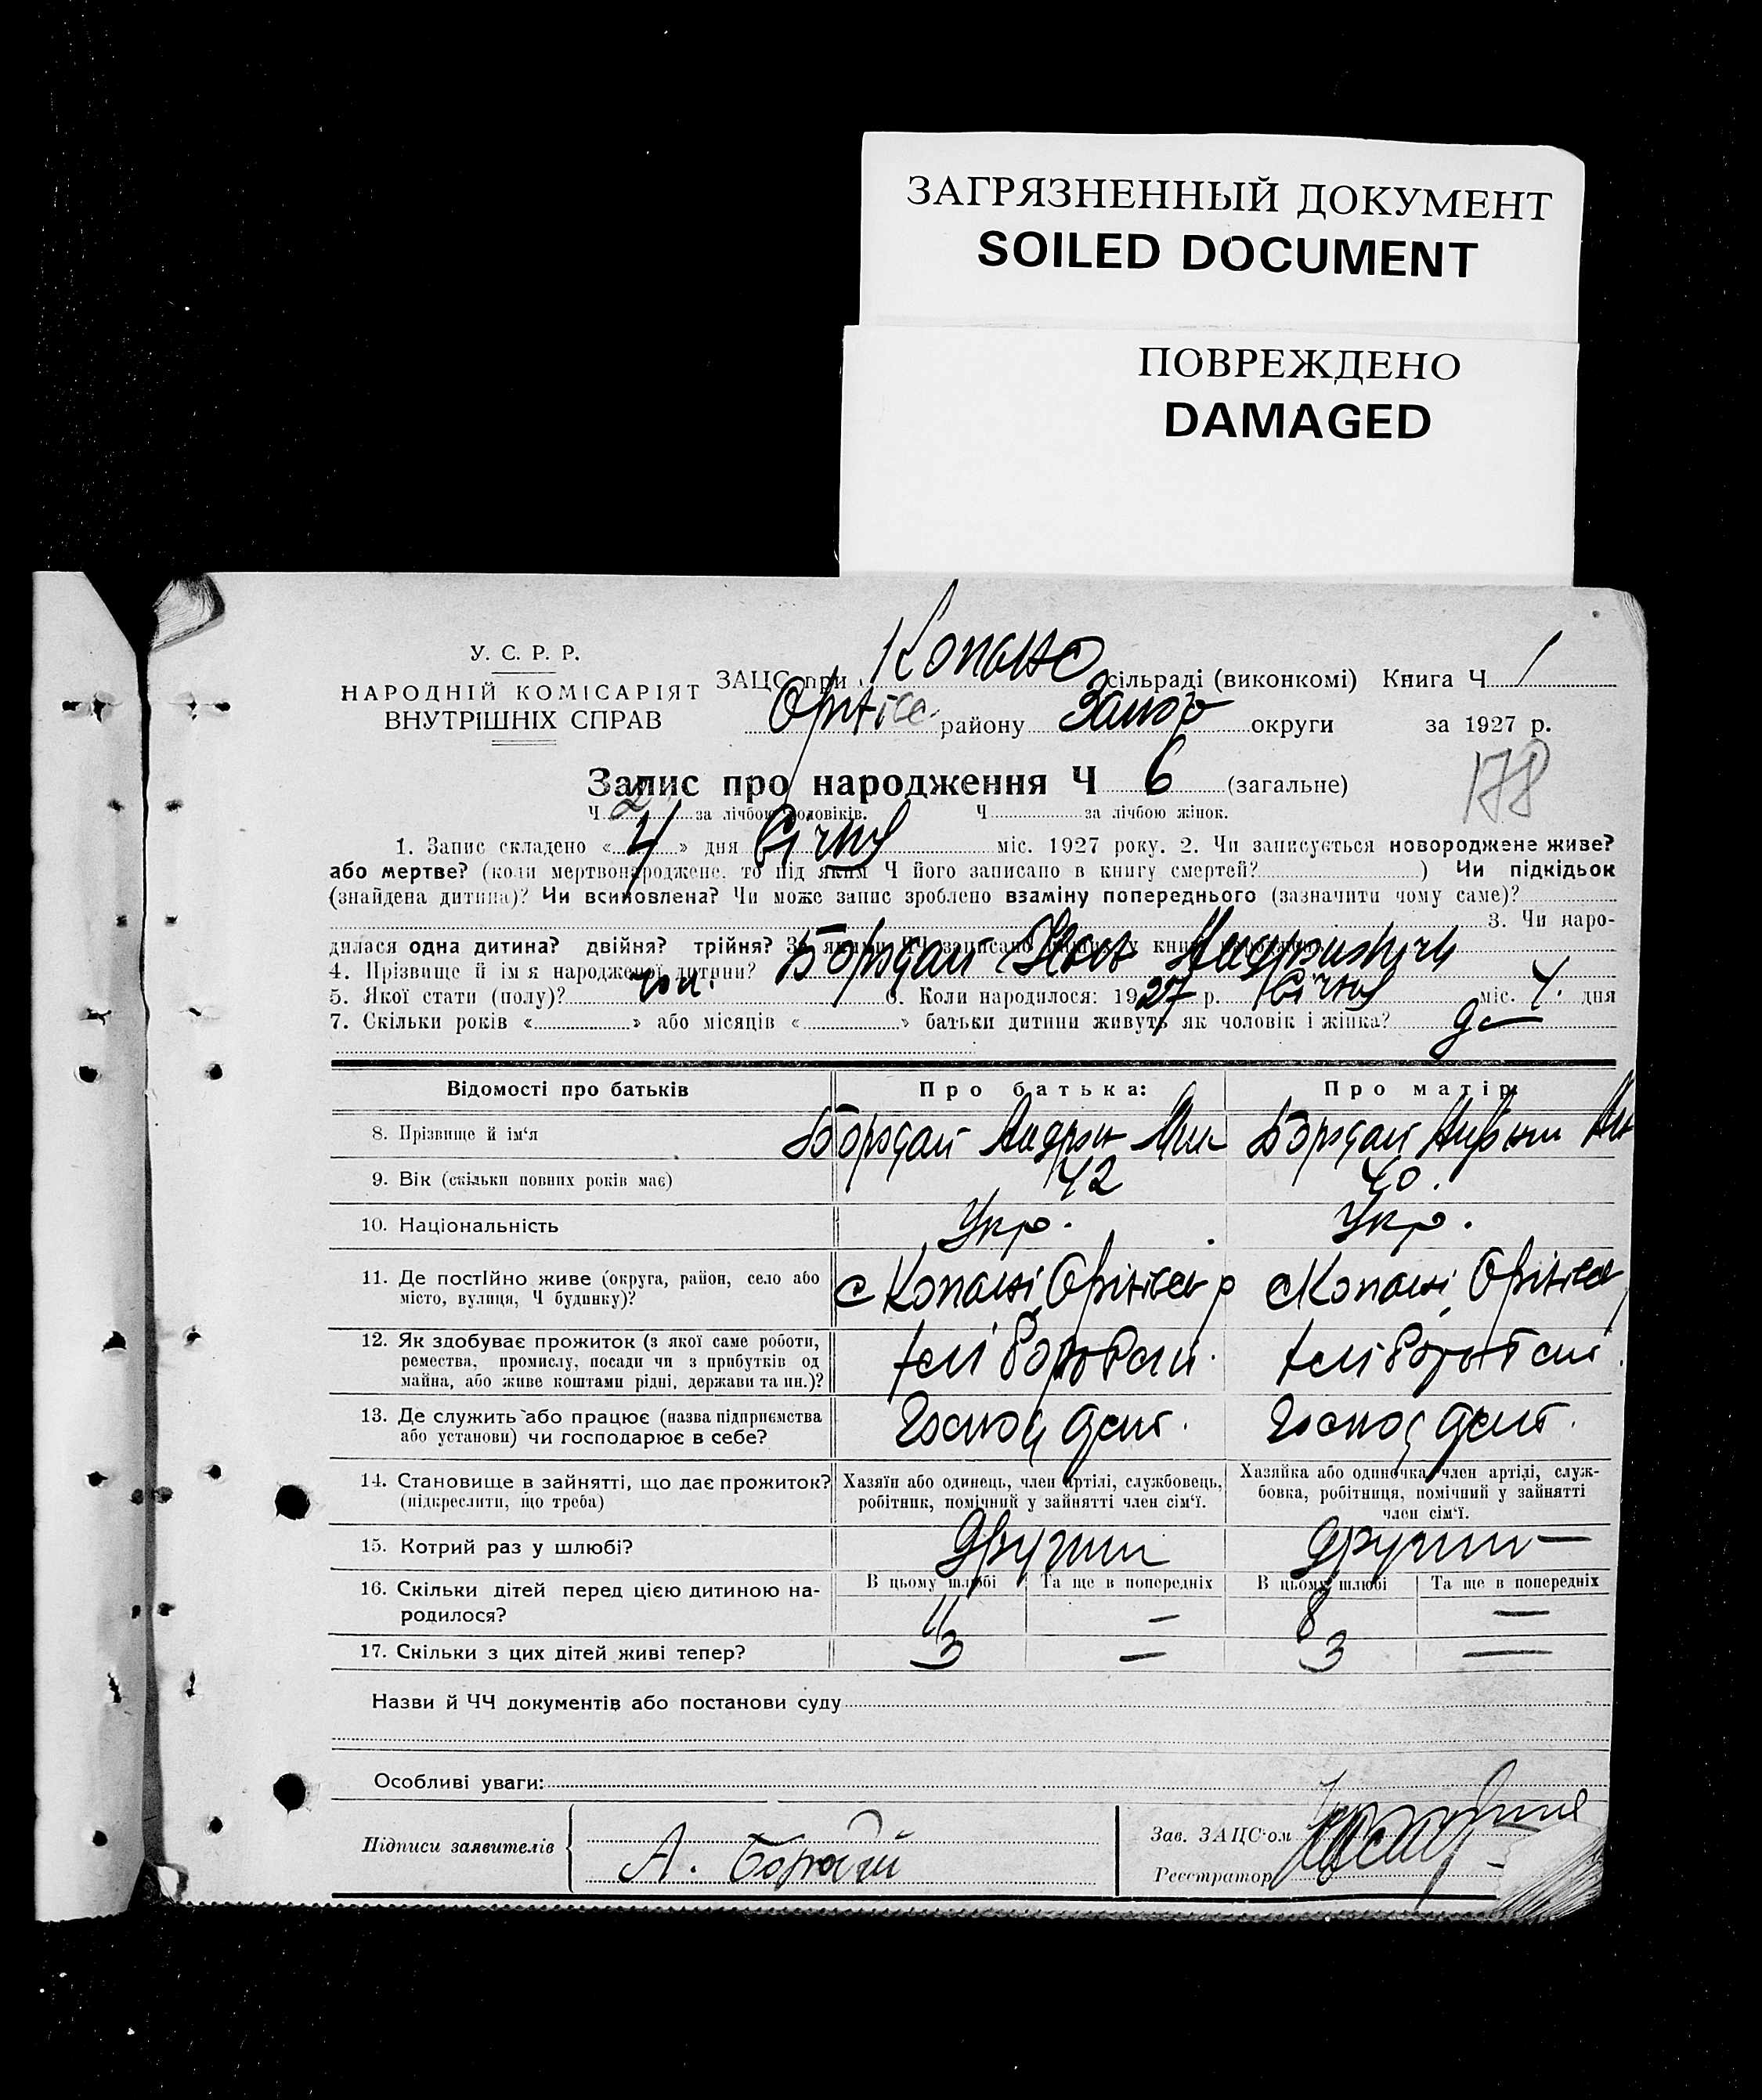 ЗАГРЯЗНЕННЫЙ ДОКУМЕНТ
SOILED DOCUMENT
ПОВРЕЖДЕНО
DAMAGED
У. С. Р. Р.
НАРОДНІЙ КОМІСАРІЯТ
ВНУТРІШНІХ СПРАВ
ЗАЦС при Копано сільраді (виконкомі) Книга Ч 1
району округи за 1927 р.
Запис про народження Ч 6 (загальне)
178
Ч 2 за лічбою чоловіків. Ч за лічбою жінок.
1. Запис складено « 4 » дня Січня міс. 1927 року. 2. Чи записується новороджене живе?
або мертве? (коли мертвонароджене, то під яким Ч його записано в книгу смертей? ) Чи підкідьок
(знайдена дитина)? Чи всиновлена? Чи може запис зроблено взаміну попереднього (зазначити чому саме)?
3. Чи наро-
дилася одна дитина? двійня? трійня? За якими ЧЧ записано
4. Прізвище й ім'я народженої дитини? Бородай Іван Андрієвич
5. Якої стати (полу)? чол. 6. Коли народилося: 1927 р. Січня міс. 4. дня
7. Скільки років « » або місяців « » батьки дитини живуть як чоловік і жінка?
Відомості про батьків Про батька: Про матір:
8. Прізвище й ім'я Бородай Андрій Бородай
9. Вік (скільки повних років має) 42 40.
10. Національність Укр. Укр.
11. Де постійно живе (округа, район, село або
місто, вулиця, Ч будинку)? с Копані р с Копані
12. Як здобуває прожиток (з якої саме роботи,
ремества, промислу, посади чи з прибутків од
майна, або живе коштами рідні, держави та ин.)?
хліборобст. хліборобст.
13. Де служить або працює (назва підприємства
або установи) чи господарює в себе?
14. Становище в зайнятті, що дає прожиток?
(підкреслити, що треба)
Хазяїн або одинець, член артілі, службовець,
робітник, помічний у зайнятті член сім'ї.
Хазяйка або одиночка, член артілі, служ-
бовка, робітниця, помічний у зайнятті
член сім'ї.
15. Котрий раз у шлюбі? другий другий
16. Скільки дітей перед цією дитиною на-
родилося?
В цьому шлюбі Та ще в попередніх В цьому шлюбі Та ще в попередніх
11 — 8 —
17. Скільки з цих дітей живі тепер? 3 — 3 —
Назви й ЧЧ документів або постанови суду
Особливі уваги:
Підписи заявителів А. Бородай
Зав. ЗАЦС'ом
Реєстратор